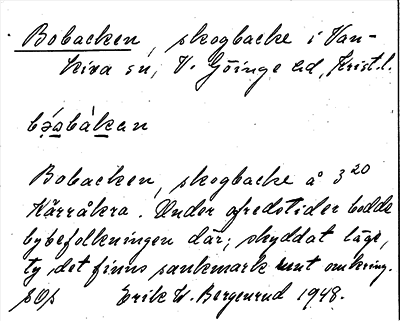 Bobacken, skogbacke i Van-
kiva sn, V. Göinge hd, Krist.l.
bо̀sbàkan
Bobacken, skogbacke å 3²⁰
Kärråkra. Under ofredstider bodde
bybefolkningen där; skyddat läge,
ty det finns sankmark runt omkring.
Erik W. Bergenrud 1948.